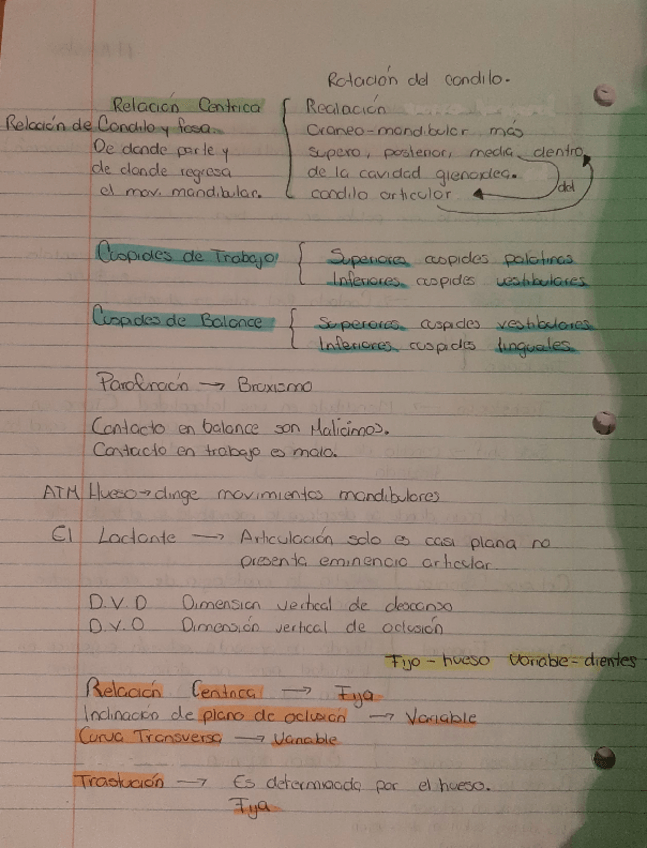 Rotación del condilo.
Relación Centrica
Realación
Relación de Condilo y fosa
Craneo-mandibular más
De donde parte y
supero, posterior, media, dentro
de donde regresa
de la cavidad glenoidea.
el mov. mandibular.
condilo articular
del
Cuspides de Trabajo
Superiores cuspides palatinas
Inferiores cuspides vestibulares
Cuspides de Balance
Superores cuspides vestibulares
Inferiores cuspides linguales.
Parafunción → Bruxismo
Contacto en balance son Malicimos.
Contacto en trabajo es malo.
ATM Hueso → dirige movimientos mandibulares
El Lactante → Articulación solo es casi plana no
presenta eminencia articular
D.V.D Dimension vertical de descanso
D.V.O Dimensión vertical de oclusión
Fijo - hueso Variable - dientes
Relación Centrica → Fija
Inclinación de plano de oclusión → Variable
Curva Transversa → Variable
Traslución → Es determinada por el hueso.
Fija